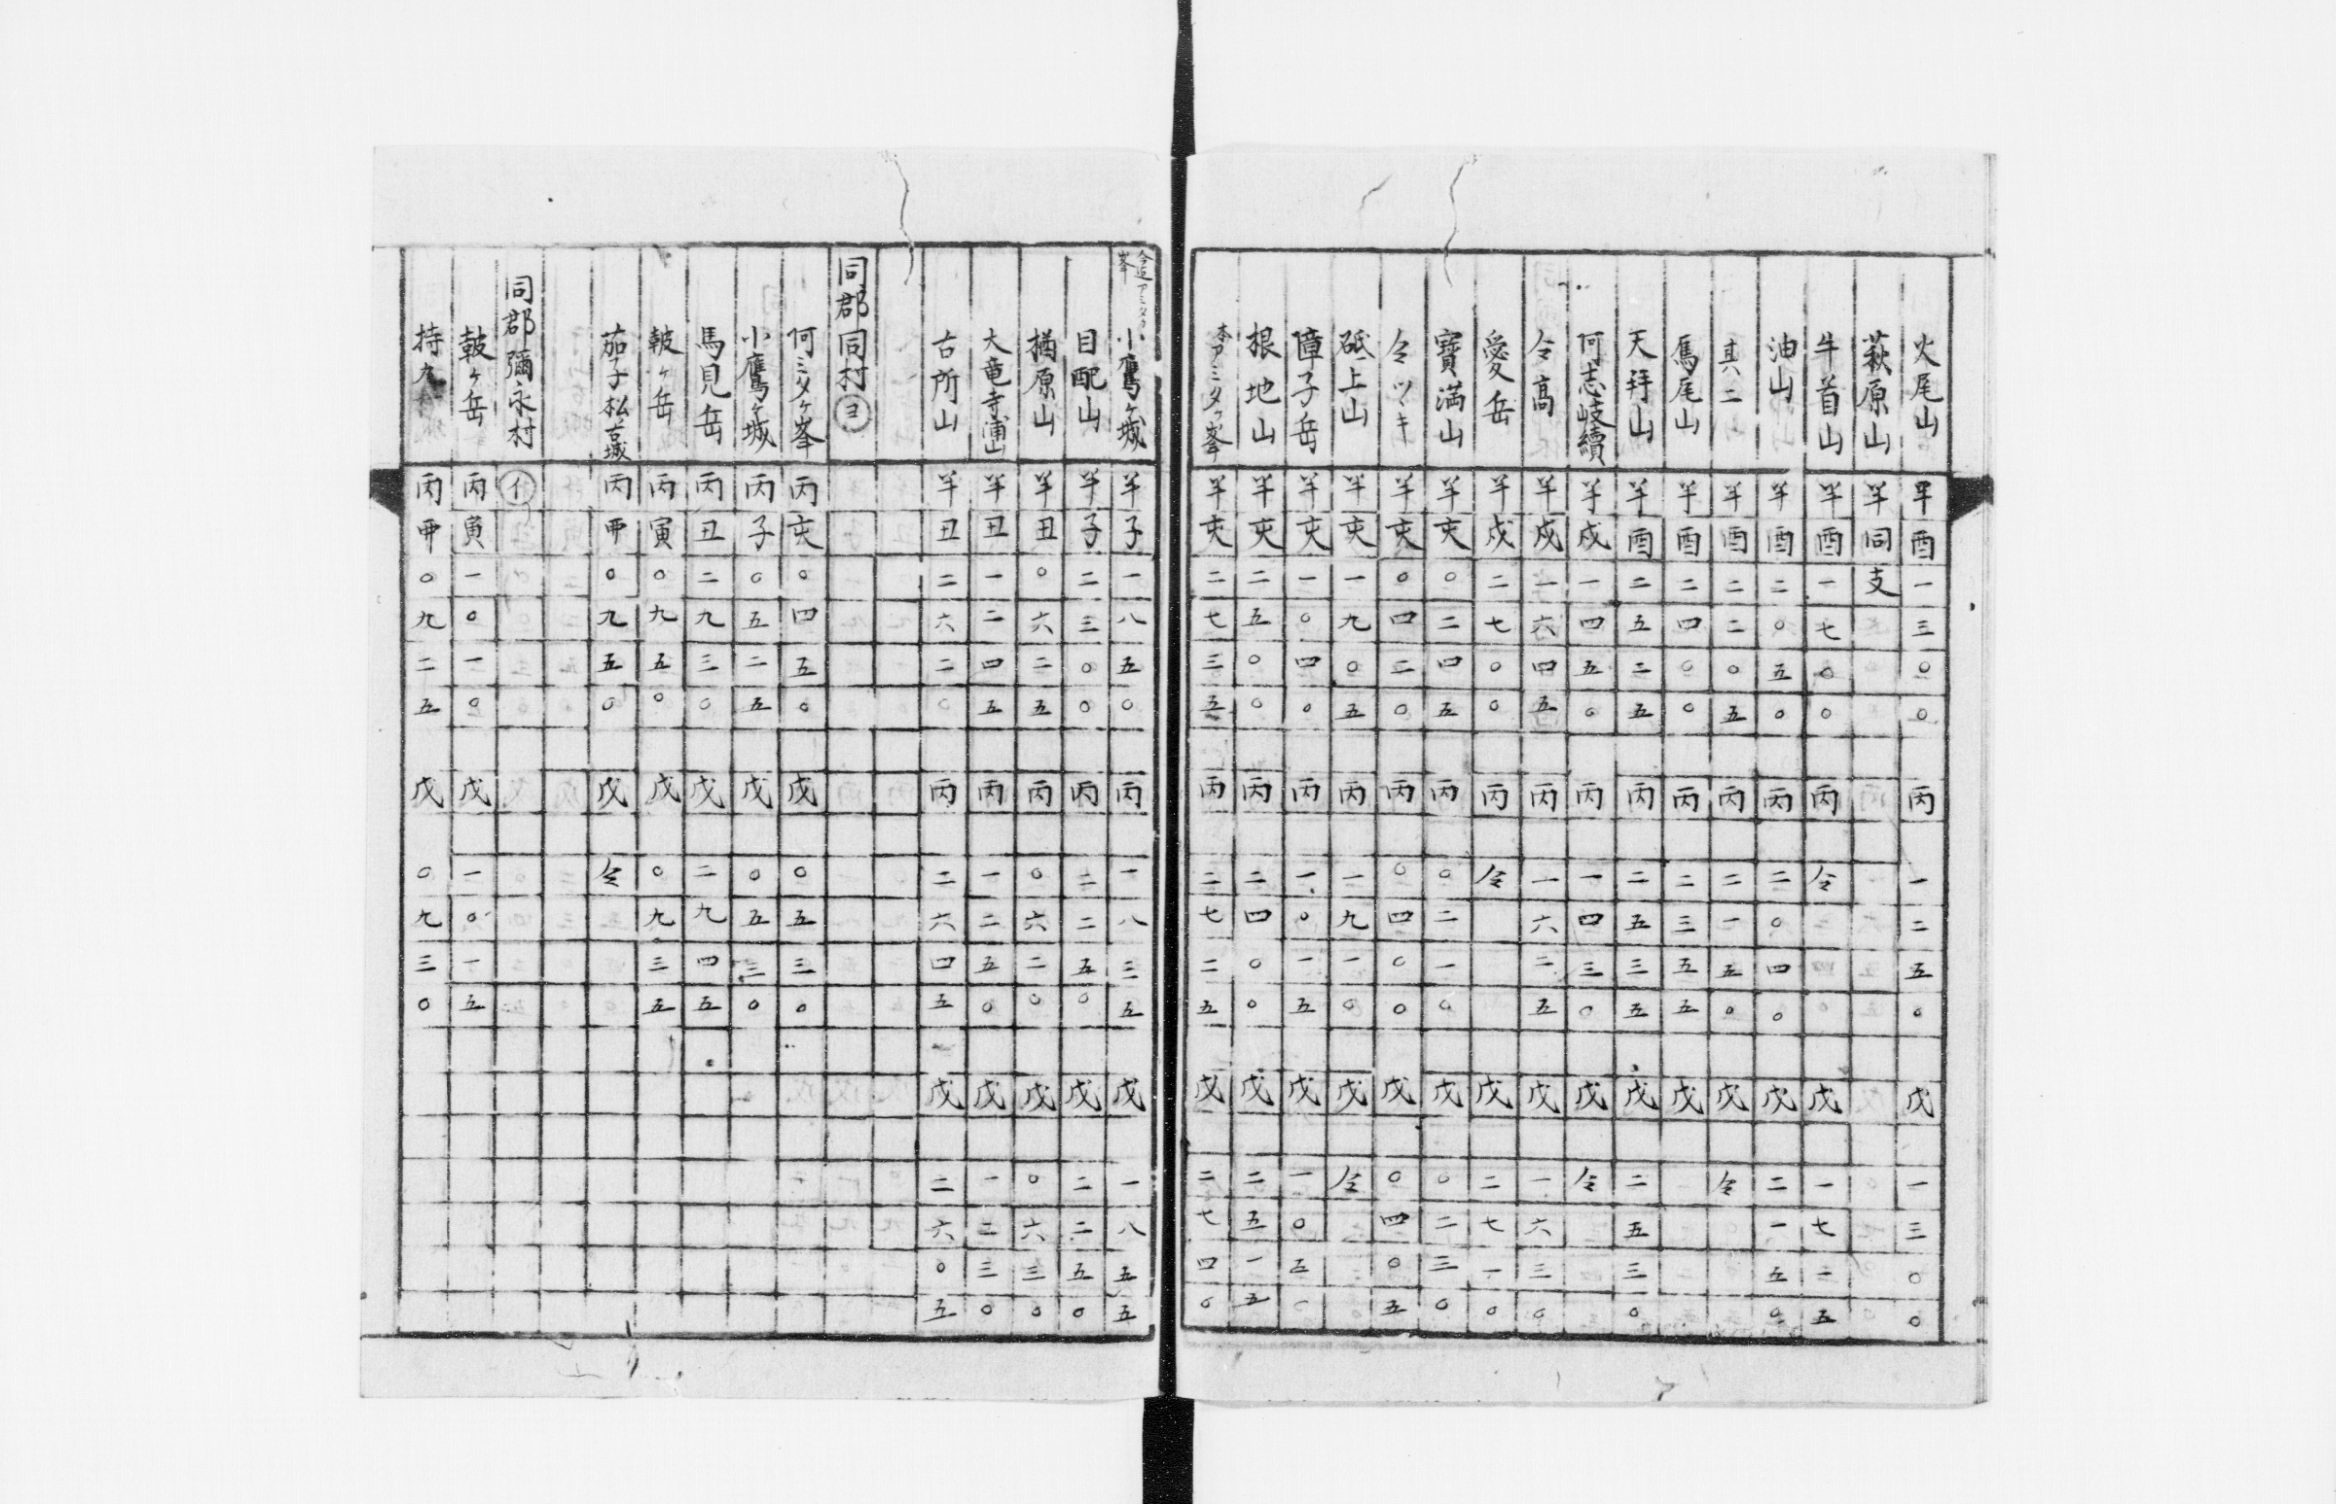 火尾山 半酉一三〇〇 丙一二五〇 戊一三〇〇
萩原山 半同支
牛首山 半酉一七〇〇 丙仝 戊一七二五
油山 半酉二〇五〇 丙二〇四〇 戊二一五〇
其二 半酉二二〇五 丙二一五〇 戊仝
馬尾山 半酉二四〇〇 丙二三五五 戊
天拜山 半酉二五二五 丙二五三五 戊二五三〇
阿志岐續 半戌一四五〇 丙一四三〇 戊仝
仝高 半戌一六四五 丙一六二五 戊一六三〇
愛岳 半戌二七〇〇 丙仝 戊二七一〇
寶満山 半亥〇二四五 丙〇二一〇 戊〇二三〇
仝ツヽキ 半亥〇四二〇 丙〇四〇〇 戊〇四〇五
砥上山 半亥一九〇五 丙一九一〇 戊仝
障子岳 半亥一〇四〇 丙一〇一五 戊一〇五〇
根地山 半亥二五〇〇 丙二四〇〇 戊二五一五
本アミタヶ峯 半亥二七三五 丙二七二五 戊二七四〇
小鷹ヶ城 半子一八五〇 丙一八三五 戊一八五五
目配山 半子二三〇〇 丙二二五〇 戊二二五〇
楢原山 半丑〇六二五 丙〇六二〇 戊〇六三〇
大竜寺浦山 半丑一二四五 丙一二五〇 戊一二三〇
古所山 半丑二六二〇 丙二六四五 戊二六〇五
同郡同村㋵
何ミタヶ峯 丙亥〇四五〇 戊〇五三〇
小鷹ヶ城 丙子〇五二五 戊〇五三〇
馬見岳 丙丑二九三〇 戊二九四五
皷ヶ岳 丙寅〇九五〇 戊〇九三五
茄子松古城 丙甲〇九五〇 戊仝
同郡彌永村㋑
皷ヶ岳 丙寅一〇一〇 戊一〇一五
持丸 丙甲〇九二五 戊〇九三〇